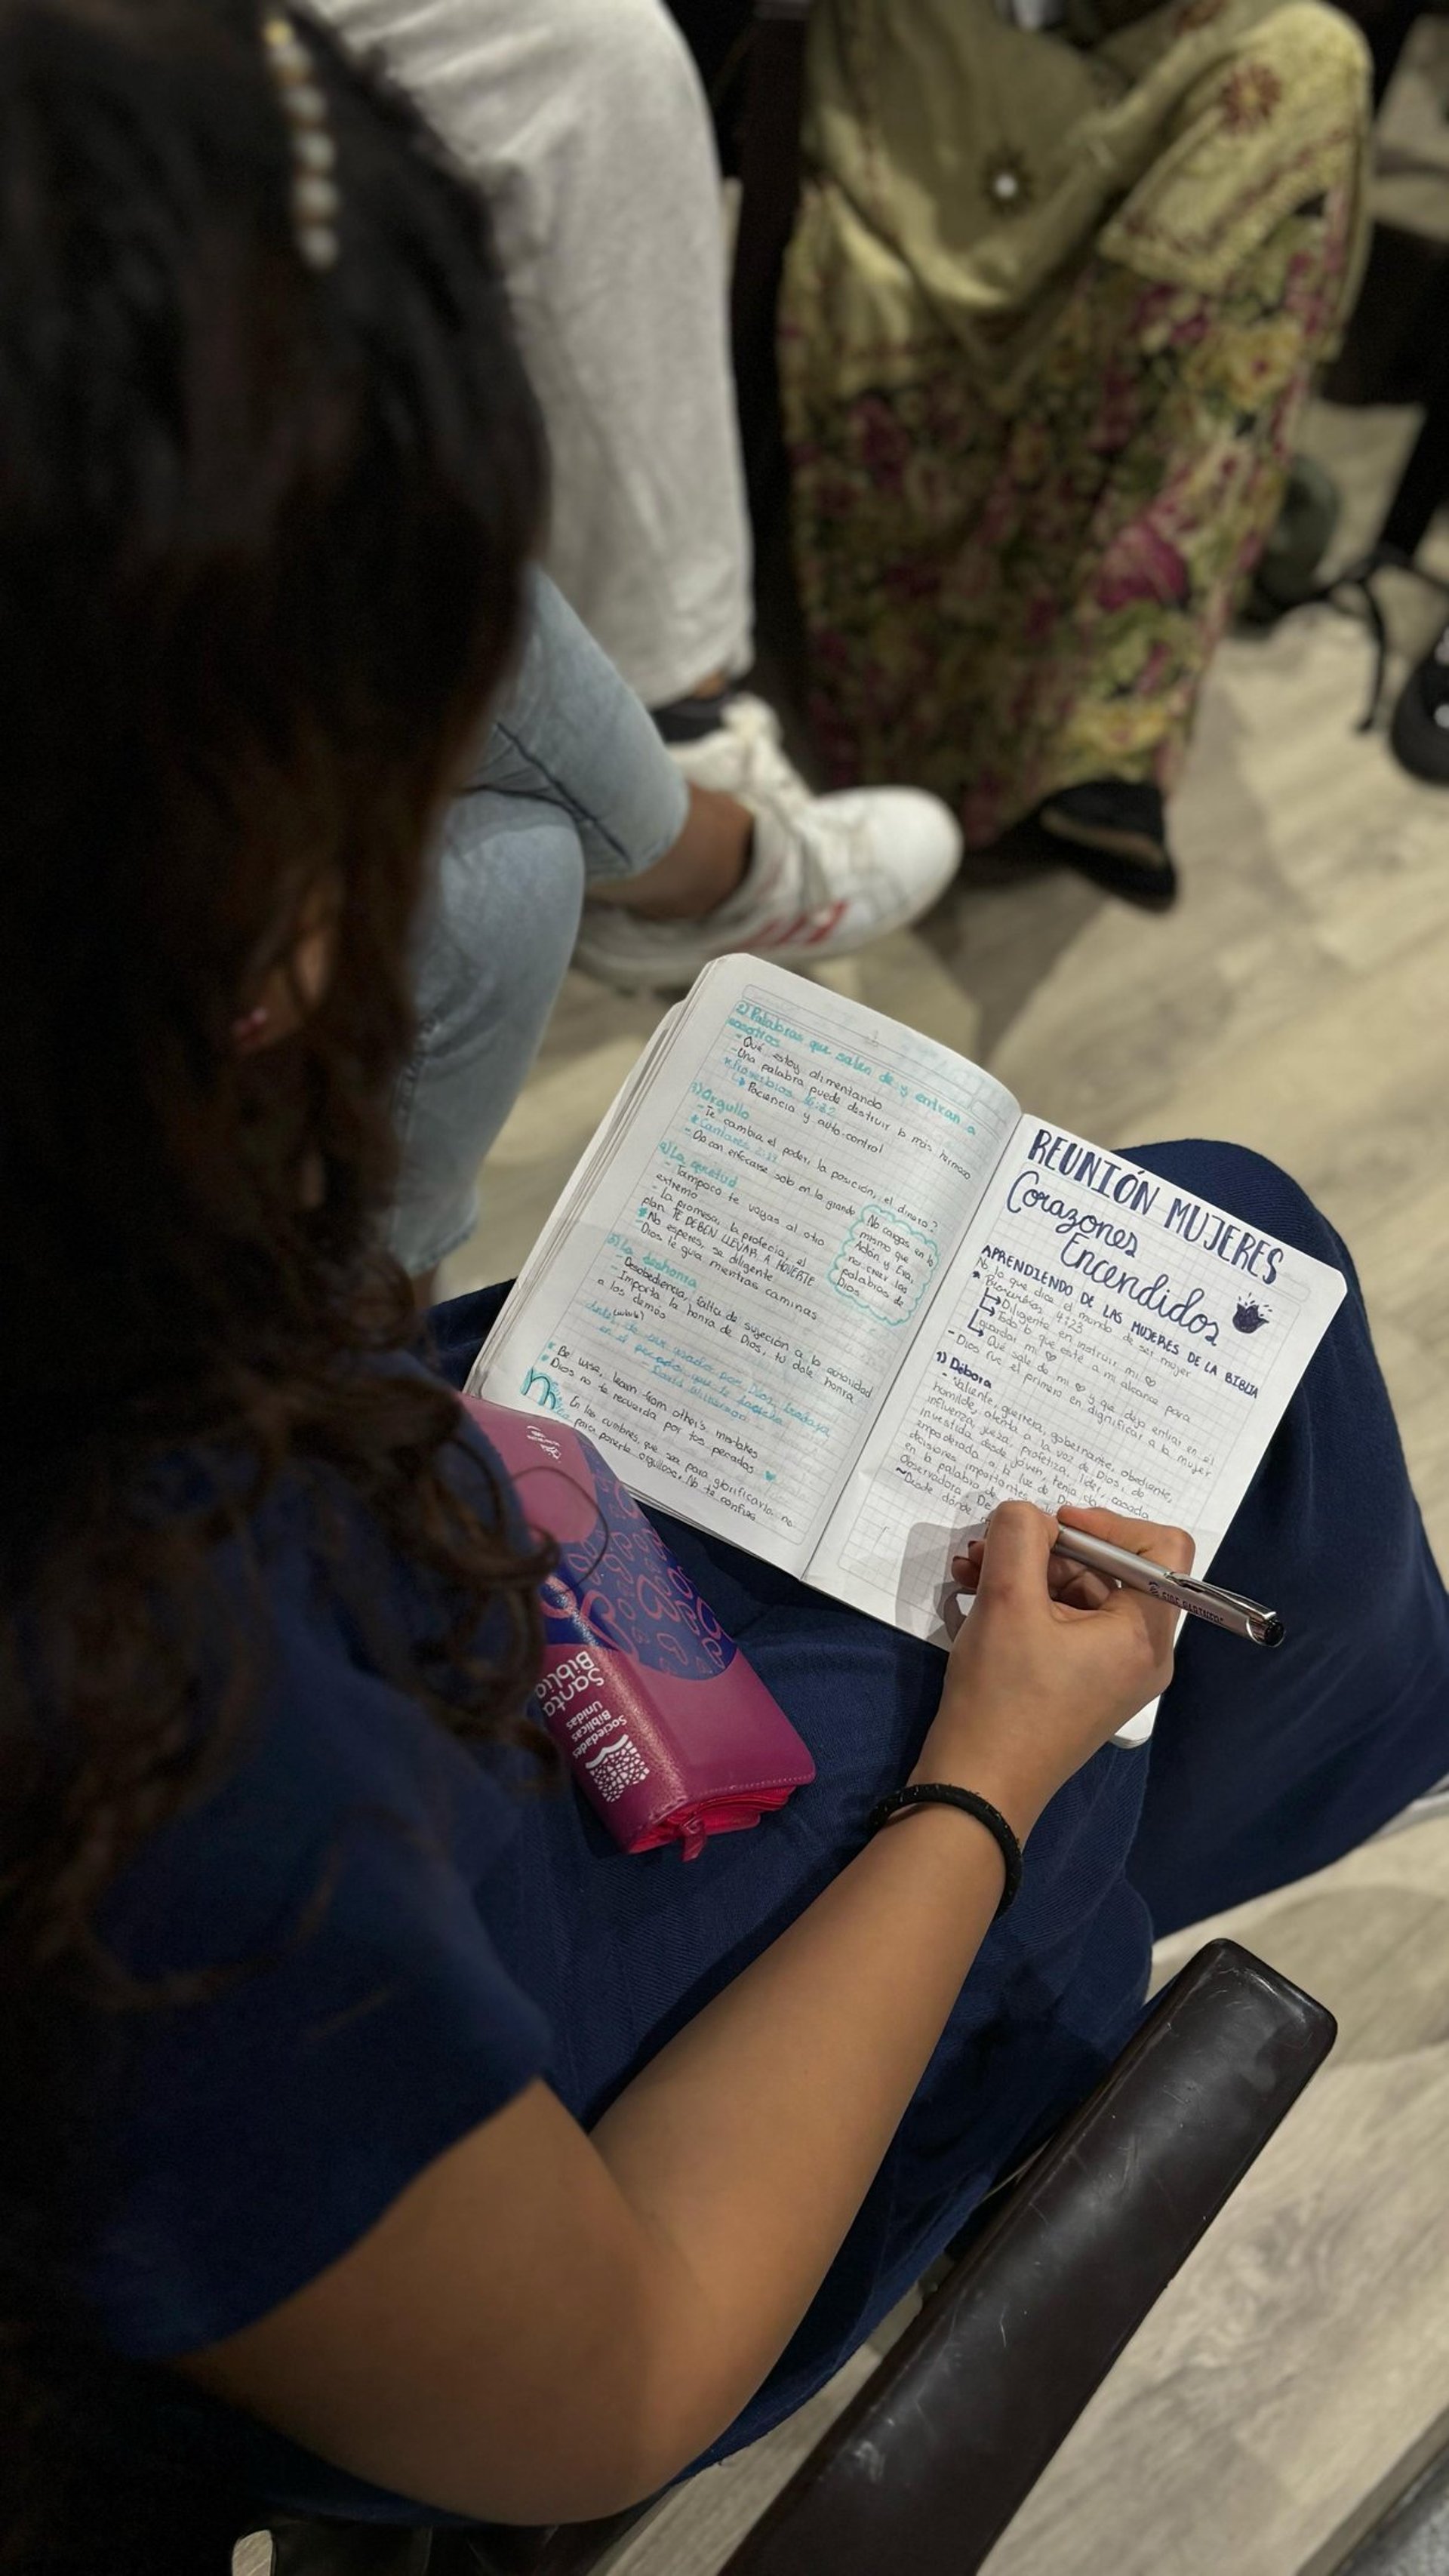 2) Palabras que salen de y entran a
nosotros
- Qué estoy alimentando
- Una palabra puede destruir lo más hermoso
* Proverbios 16:32
↳ Paciencia y auto-control
3) Orgullo
- Te cambia el poder, la posición, el dinero?
* Cantares 2:15
- Dañan enfocarse solo en lo grande
No caigas en lo
mismo que
Adán y Eva,
no creer las
palabras de
Dios
4) La quietud
- Tampoco te vayas al otro
extremo
- La promesa, la profecía, el
plan TE DEBEN LLEVAR A MOVERTE
* No esperes, se diligente
Dios te guía mientras caminas
5) La deshonra
- Desobediencia, falta de sujeción a la autoridad
- Importa la honra de Dios, tú dale honra
a los demás
Antes de ser usados por Dios, trabaja
en el pecado que te
- David Wilkerson
* Be wise, learn from other's mistakes
* Dios no te recuerda por tus pecados
En las cumbres, que sea para glorificarlo, no
para ponerte orgullosa. No te confíes
REUNIÓN MUJERES
Corazones
Encendidos
APRENDIENDO DE LAS MUJERES DE LA BIBLIA
No lo que dice el mundo de ser mujer
* Proverbios 4:23
↳ Diligente en instruir mi ♡
↳ Todo lo que esté a mi alcance para
guardar mi ♡
↳ Qué sale de mi ♡ y que dejo entrar en él
- Dios fue el primero en dignificar a la mujer
1) Débora
- Valiente, guerrera, gobernante, obediente,
humilde, atenta a la voz de Dios, de
influenza, jueza, profetiza, líder, casada,
investida desde joven, tenía
empoderada a la luz de
decisiones importantes
en la palabra de
Observadora. De
~Desde dónde
Santa
Biblia
Sociedades
Bíblicas
Unidas